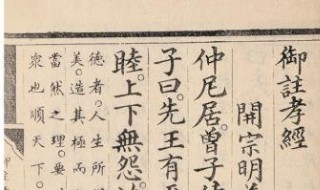 御註孝經
開宗明
仲尼居。曾子
子曰。先王有
睦。上下無怨。
德者。人生所
美。造其極而
當然之理。要
衆也順天下。